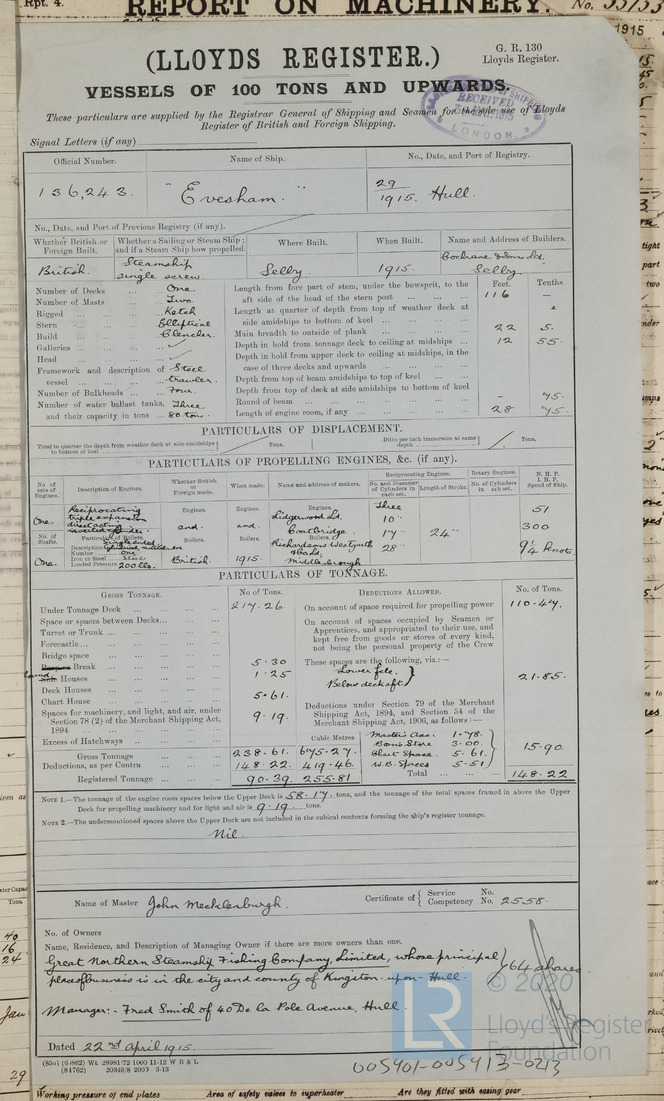 Rpt. 4.
REPORT ON MACHINERY.
No. 33753
1915
(LLOYDS REGISTER.)
G. R. 130
Lloyds Register.
VESSELS OF 100 TONS AND UPWARDS.
RECEIVED
LONDON.
These particulars are supplied by the Registrar General of Shipping and Seamen for the sole use of Lloyds
Register of British and Foreign Shipping.
Signal Letters (if any)
Official Number. Name of Ship. No., Date, and Port of Registry.
136,243. "Evesham." 29/1915. Hull.
No., Date, and Port of Previous Registry (if any).
Whether British or Foreign Built. Whether a Sailing or Steam Ship; and if a Steam Ship how propelled. Where Built. When Built. Name and Address of Builders.
British. Steamship single screw. Selby. 1915. Cochrane & Son Ld. Selby.
Number of Decks ... One.
Number of Masts ... Two.
Rigged ... Ketch
Stern ... Elliptical
Build ... Clencher.
Galleries ...
Head ...
Framework and description of vessel ... Steel trawler.
Number of Bulkheads ... Four.
Number of water ballast tanks, Three
and their capacity in tons ... 80 ton.
Feet. Tenths
Length from fore part of stem, under the bowsprit, to the
aft side of the head of the stern post ... 116 —
Length at quarter of depth from top of weather deck at
side amidships to bottom of keel ...
Main breadth to outside of plank ... 22 5.
Depth in hold from tonnage deck to ceiling at midships ... 12 55.
Depth in hold from upper deck to ceiling at midships, in the
case of three decks and upwards ...
Depth from top of beam amidships to top of keel ...
Depth from top of deck at side amidships to bottom of keel
Round of beam ... - 45.
Length of engine room, if any ... 28 45.
PARTICULARS OF DISPLACEMENT.
Total to quarter the depth from weather deck at side amidships to bottom of keel Tons. Ditto per inch immersion at same depth Tons.
PARTICULARS OF PROPELLING ENGINES, &c. (if any).
No. of sets of Engines. Description of Engines. Whether British or Foreign made. When made. Name and address of makers. Reciprocating Engines. No. and Diameter of Cylinders in each set. Length of Stroke. Rotary Engines. No. of Cylinders in each set. N. H. P. I. H. P. Speed of Ship.
One. Reciprocating triple expansion direct acting Engines. and. Engines. and. Engines. Lidgerwood Ld, Coatbridge. Three 10" 17" 28" 24" 51 300 9¼ knots
No. of Shafts. Particulars of Boilers. Boilers. Boilers. Boilers.
One. Description Number One Iron or Steel Steel Loaded Pressure 200 lbs. British. 1915. Richardsons Westgarth & Co Ld, Middlesbrough
PARTICULARS OF TONNAGE.
GROSS TONNAGE. No. of Tons. DEDUCTIONS ALLOWED. No. of Tons.
Under Tonnage Deck ... 217.26.
Space or spaces between Decks...
Turret or Trunk ...
Forecastle ...
Bridge space ...
Break ... 5.30
Houses ... 1.25
Deck Houses ...
Chart House ... 5.61.
Spaces for machinery, and light, and air, under
Section 78 (2) of the Merchant Shipping Act,
1894 ... 9.19.
Excess of Hatchways ...
Cubic Metres
Gross Tonnage ... 238.61. 675.27.
Deductions, as per Contra ... 148.22. 419.46.
Registered Tonnage ... 90.39. 255.81
On account of space required for propelling power 110.47.
On account of spaces occupied by Seamen or
Apprentices, and appropriated to their use, and
kept free from goods or stores of every kind,
not being the personal property of the Crew
These spaces are the following, viz.:—
Lower fcle.
Below deck aft. 21.85.
Deductions under Section 79 of the Merchant
Shipping Act, 1894, and Section 54 of the
Merchant Shipping Act, 1906, as follows:—
Master's Acc. 1.78.
Bosn's Store 3.00.
Chart Space. 5.61.
W.B. Spaces 5.51 15.90.
Total ... 148.22
NOTE 1.—The tonnage of the engine room spaces below the Upper Deck is 58.17. tons, and the tonnage of the total spaces framed in above the Upper
Deck for propelling machinery and for light and air is 9.19. tons.
NOTE 2.—The undermentioned spaces above the Upper Deck are not included in the cubical contents forming the ship's register tonnage.
Nil.
Name of Master John Mecklenburgh. Certificate of { Service No. Competency No. 2558.
No. of Owners
Name, Residence, and Description of Managing Owner if there are more owners than one.
Great Northern Steamship Fishing Company, Limited, whose principal
place of business is in the city and county of Kingston-upon-Hull. } 64 shares
Manager:- Fred Smith of 40 De la Pole Avenue, Hull.
Dated 22nd April 1915.
LR
© 2020
Lloyd's Register
Foundation
005401-005413-0213
Working pressure of end plates Area of safety valves to superheater Are they fitted with easing gear